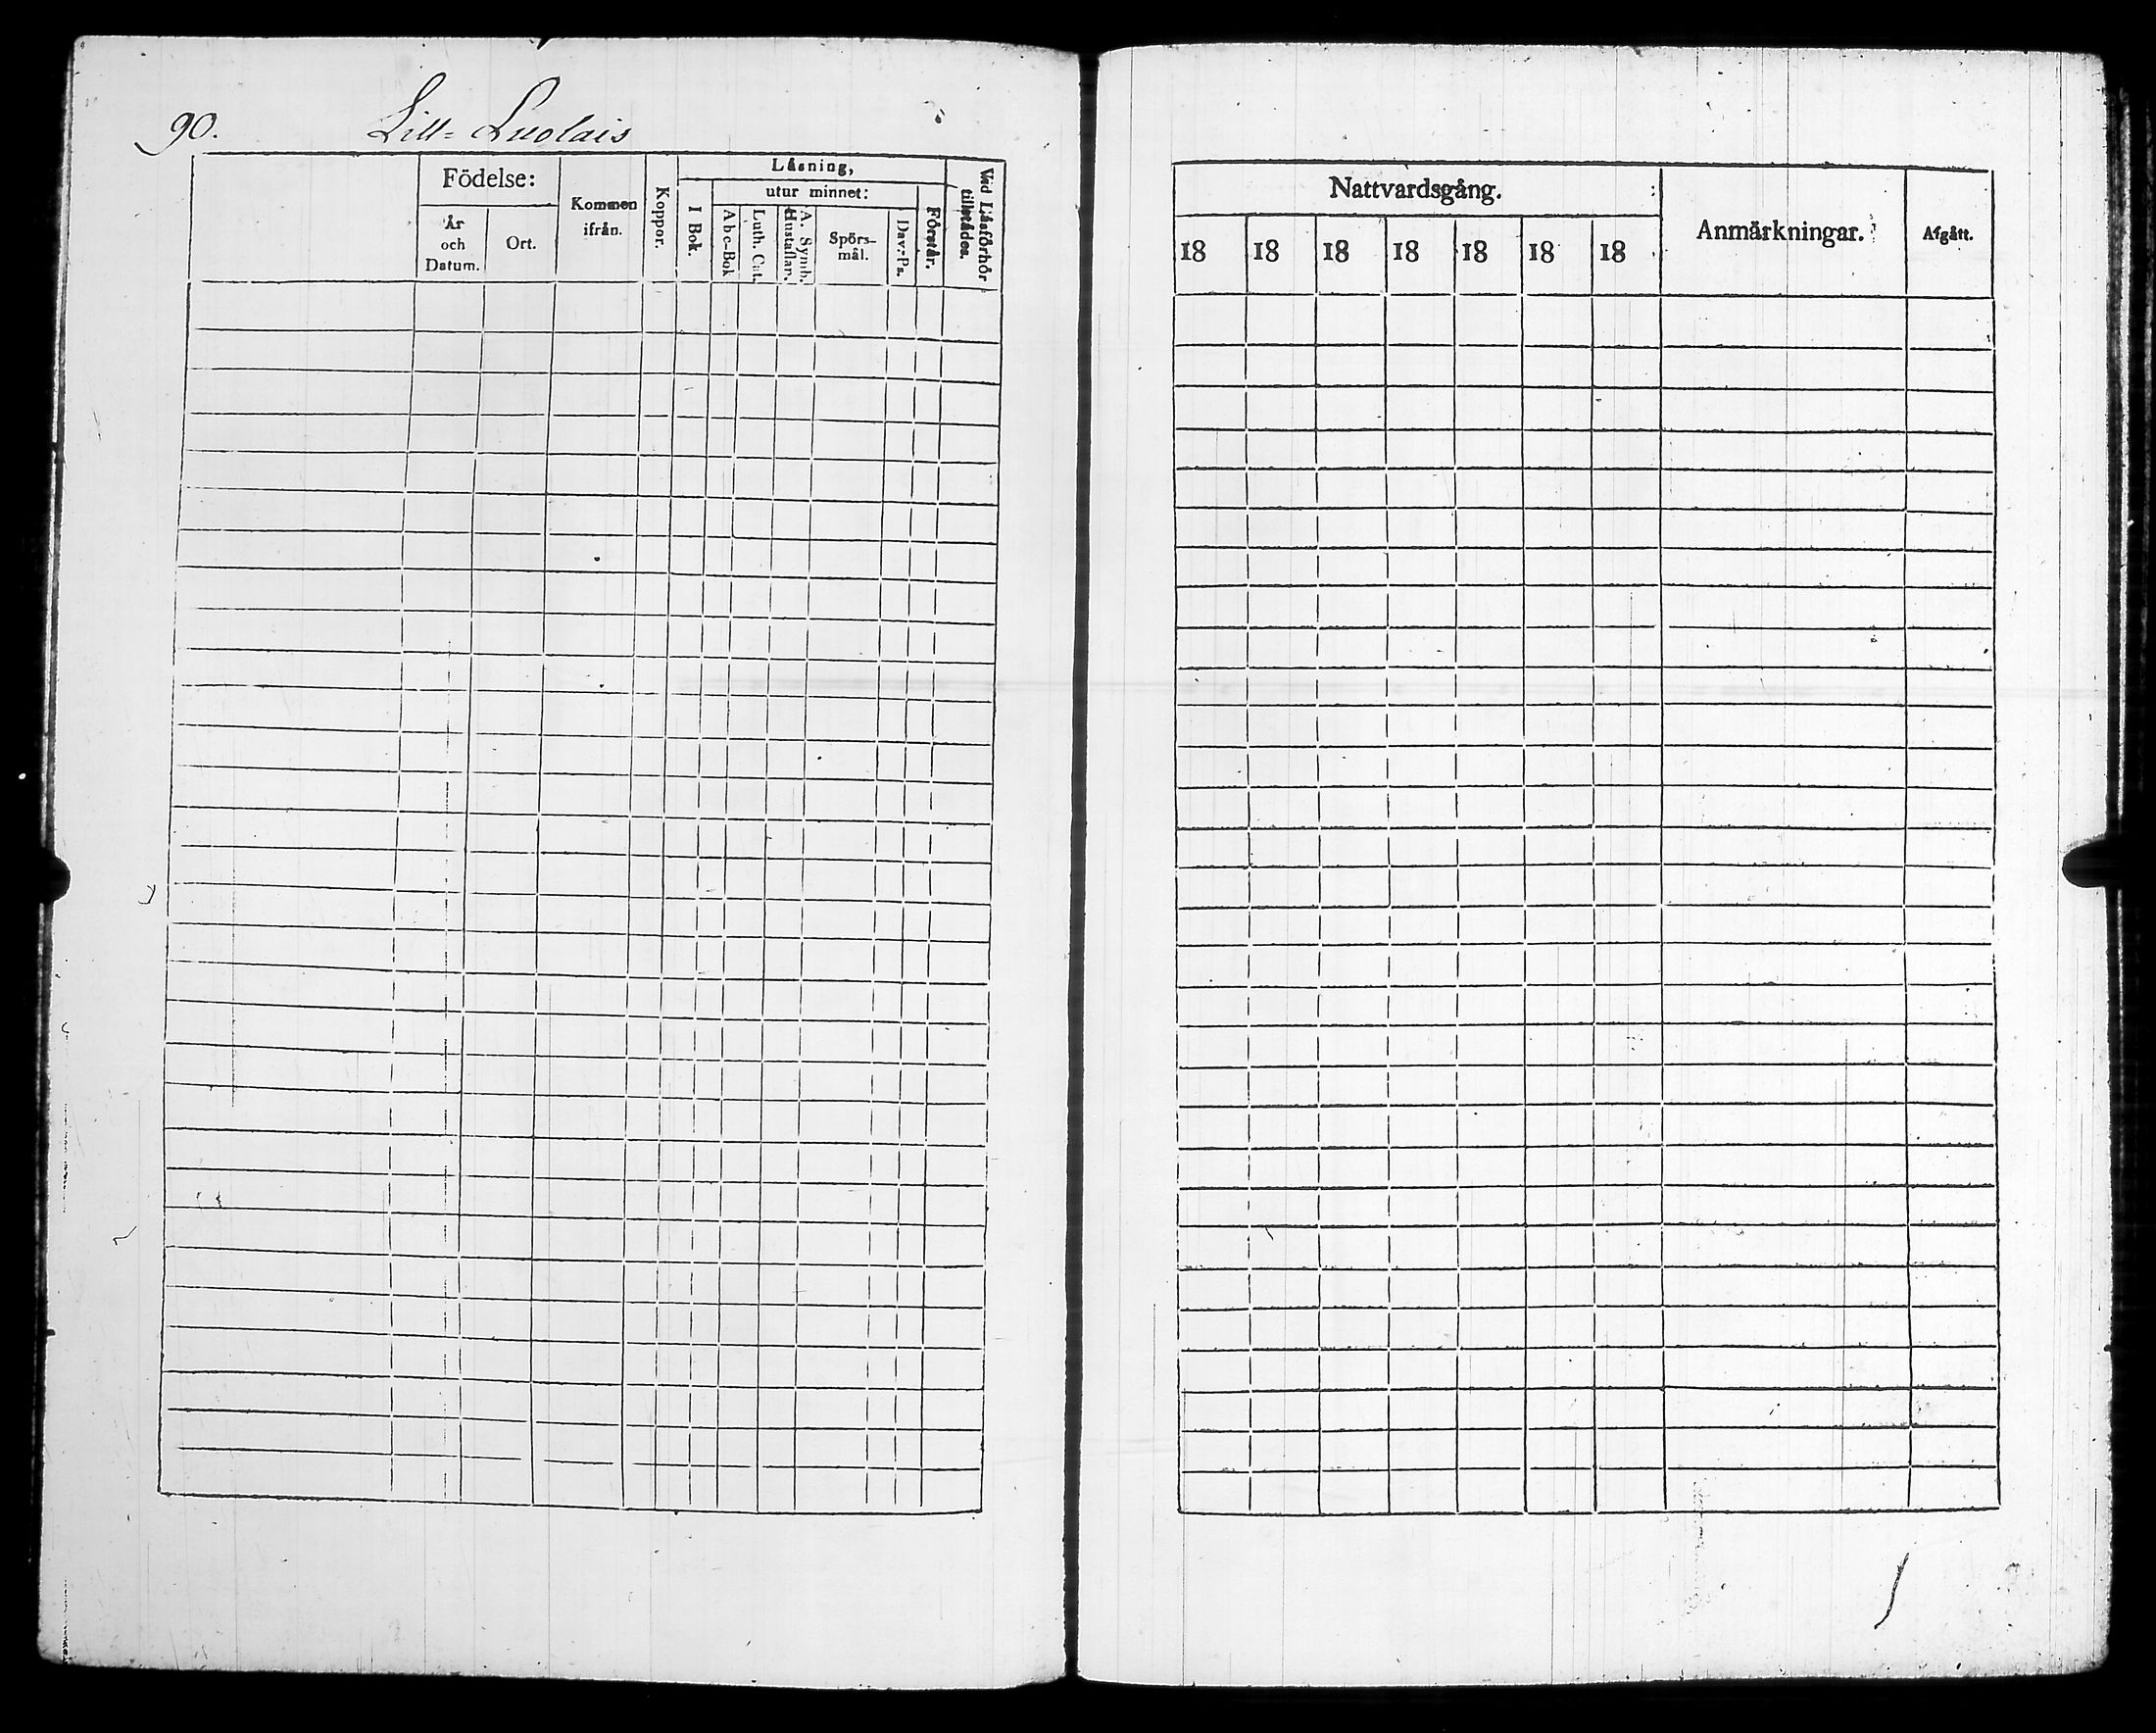 90. Lill-Luolais
Födelse:
År och Datum.
Ort.
Kommen ifrån.
Koppor.
Läsning,
I Bok.
utur minnet:
Abc-Bok
Luth. Cat.
A. Symb. Hustaflan.
Spörsmål.
Dav. Ps.
Förstår.
Vid Läsförhör tillstädes.
Nattvardsgång.
18 18 18 18 18 18 18
Anmärkningar.
Afgått.